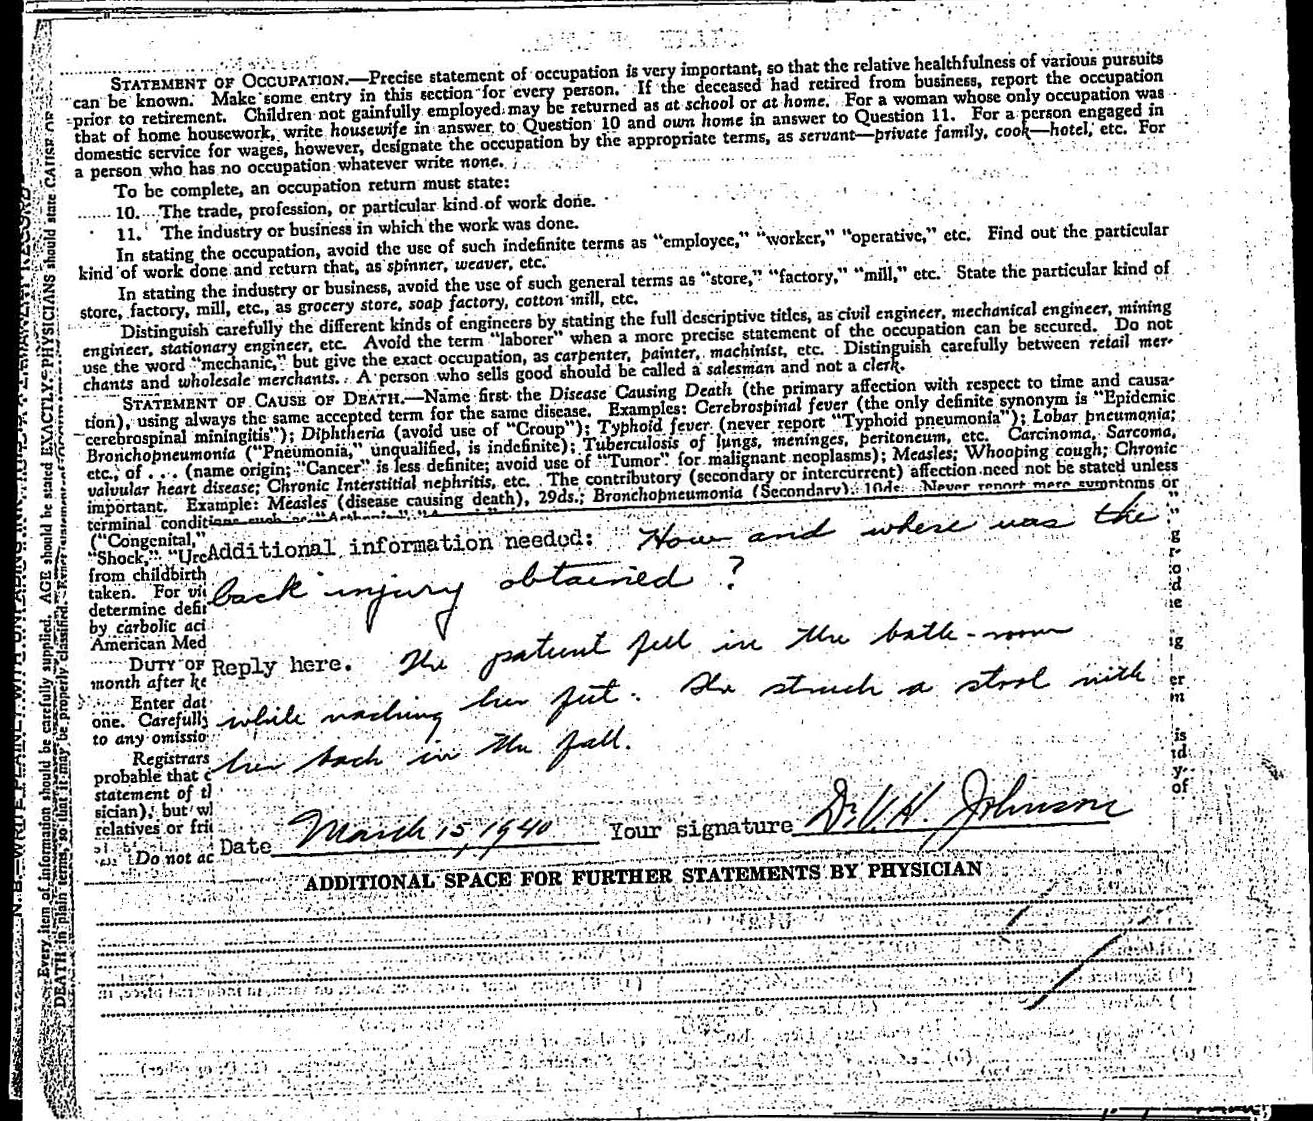 STATEMENT OF OCCUPATION.—Precise statement of occupation is very important, so that the relative healthfulness of various pursuits
can be known. Make some entry in this section for every person. If the deceased had retired from business, report the occupation
prior to retirement. Children not gainfully employed may be returned as at school or at home. For a woman whose only occupation was
that of home housework, write housewife in answer to Question 10 and own home in answer to Question 11. For a person engaged in
domestic service for wages, however, designate the occupation by the appropriate terms, as servant—private family, cook—hotel, etc. For
a person who has no occupation whatever write none.
To be complete, an occupation return must state:
10. The trade, profession, or particular kind of work done.
11. The industry or business in which the work was done.
In stating the occupation, avoid the use of such indefinite terms as "employee," "worker," "operative," etc. Find out the particular
kind of work done and return that, as spinner, weaver, etc.
In stating the industry or business, avoid the use of such general terms as "store," "factory," "mill," etc. State the particular kind of
store, factory, mill, etc., as grocery store, soap factory, cotton mill, etc.
Distinguish carefully the different kinds of engineers by stating the full descriptive titles, as civil engineer, mechanical engineer, mining
engineer, stationary engineer, etc. Avoid the term "laborer" when a more precise statement of the occupation can be secured. Do not
use the word "mechanic," but give the exact occupation, as carpenter, painter, machinist, etc. Distinguish carefully between retail mer-
chants and wholesale merchants. A person who sells good should be called a salesman and not a clerk.
STATEMENT OF CAUSE OF DEATH.—Name first the Disease Causing Death (the primary affection with respect to time and causa-
tion), using always the same accepted term for the same disease. Examples: Cerebrospinal fever (the only definite synonym is "Epidemic
cerebrospinal miningitis"); Diphtheria (avoid use of "Croup"); Typhoid fever (never report "Typhoid pneumonia"); Lobar pneumonia;
Bronchopneumonia ("Pneumonia," unqualified, is indefinite); Tuberculosis of lungs, meninges, peritoneum, etc. Carcinoma, Sarcoma,
etc., of ... (name origin; "Cancer" is less definite; avoid use of "Tumor" for malignant neoplasms); Measles; Whooping cough; Chronic
valvular heart disease; Chronic Interstitial nephritis, etc. The contributory (secondary or intercurrent) affection need not be stated unless
important. Example: Measles (disease causing death), 29ds.; Bronchopneumonia (Secondary). 10ds. Never report mere symptoms or
terminal conditions such as
("Congenital,"
"Shock," "Ure
from childbirth
taken. For vi
determine defi
by carbolic aci
American Med
DUTY OF
month after ke
Enter dat
one. Carefully
to any omissio
Registrars
probable that
statement of t
sician), but w
relatives or fri
Do not ac
Additional information needed: How and where was the
back injury obtained?
Reply here. The patient fell in the bath-room
while washing her feet. She struck a stool with
her back in the fall.
Date March 15, 1940 Your signature Dr. V. H. Johnson
ADDITIONAL SPACE FOR FURTHER STATEMENTS BY PHYSICIAN
N. B.—WRITE PLAINLY WITH UNFADING INK
Every item of information should be carefully supplied. AGE should be stated EXACTLY. PHYSICIANS should state CAUSE OF
DEATH in plain terms, so that it may be properly classified.